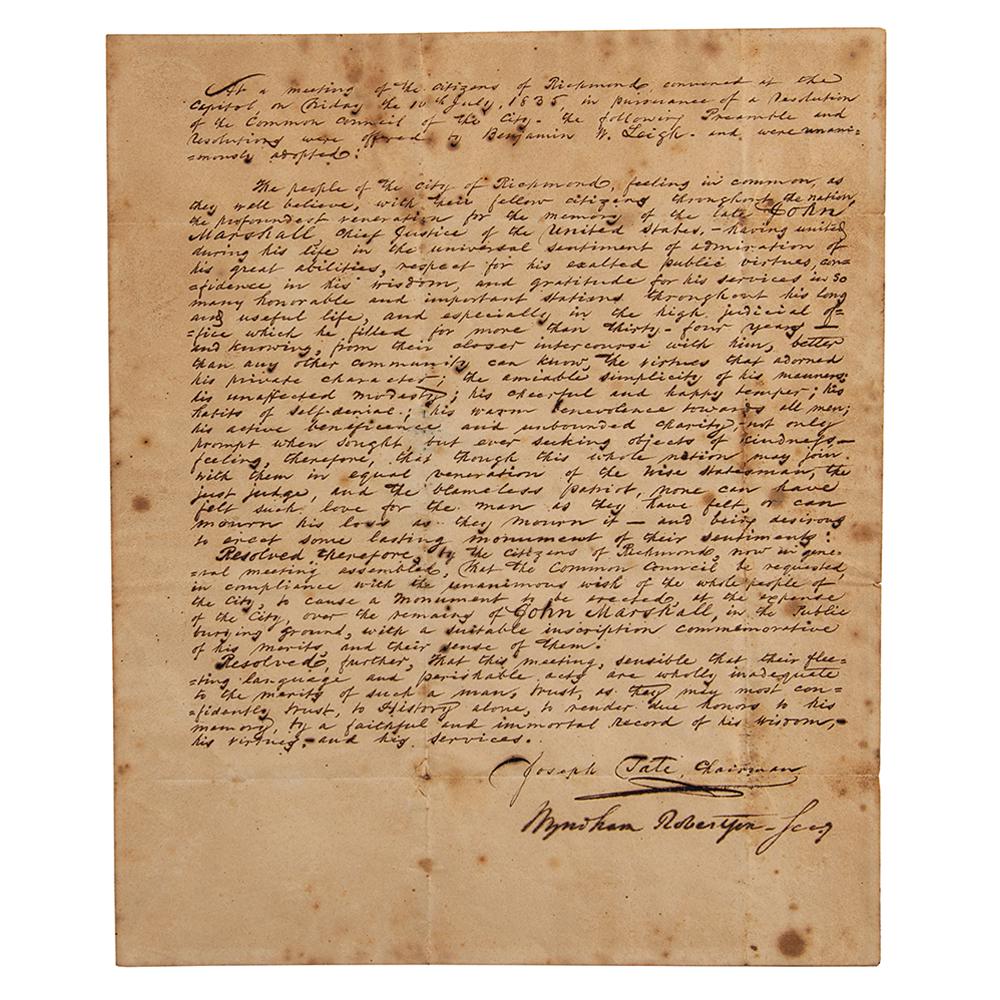 At a meeting of the citizens of Richmond, convened at the
Capitol, on Friday the 10th July, 1835, in pursuance of a Resolution
of the Common Council of the City - the following Preamble and
Resolutions were offered by Benjamin W. Leigh - and were unani-
=mously adopted:
The people of the City of Richmond, feeling in common, as
they well believe, with their fellow citizens throughout the nation,
the profoundest veneration for the memory of the late John
Marshall Chief Justice of the United States, - having united
during his life in the universal sentiment of admiration of
his great abilities, respect for his exalted public virtues, con=
=fidence in his wisdom, and gratitude for his services in so
many honorable and important stations throughout his long
and useful life, and especially in the high judicial of=
=fice which he filled for more than thirty-four years —
and knowing, from their closer intercourse with him, better
than any other community can know, the virtues that adorned
his private character; the amiable simplicity of his manners;
his unaffected modesty; his cheerful and happy temper; his
habits of self-denial; his warm benevolence towards all men;
his active beneficence and unbounded charity, not only
prompt when sought, but ever seeking objects of kindness —
feeling, therefore, that though this whole nation may join
with them in equal veneration of the wise statesman, the
just judge, and the blameless patriot, none can have
felt such love for the man as they have felt, or can
mourn his loss as they mourn it — and being desirous
to erect some lasting monument of their sentiments:
Resolved therefore, by the citizens of Richmond, now in gene-
=ral meeting assembled, that the Common Council be requested,
in compliance with the unanimous wish of the whole people of
the City, to cause a Monument to be erected, at the expense
of the City, over the remains of John Marshall, in the Public
burying ground, with a suitable inscription commemorative
of his merits, and their sense of them.
Resolved, further, that this meeting, sensible that their flee-
=ting language and perishable acts are wholly inadequate
to the merits of such a man, trust, as they may most con=
=fidently trust, to History alone, to render due honors to his
memory, by a faithful and immortal record of his wisdom,
his virtues, and his services.
Joseph Tate, Chairman
Wyndham Robertson - Secy